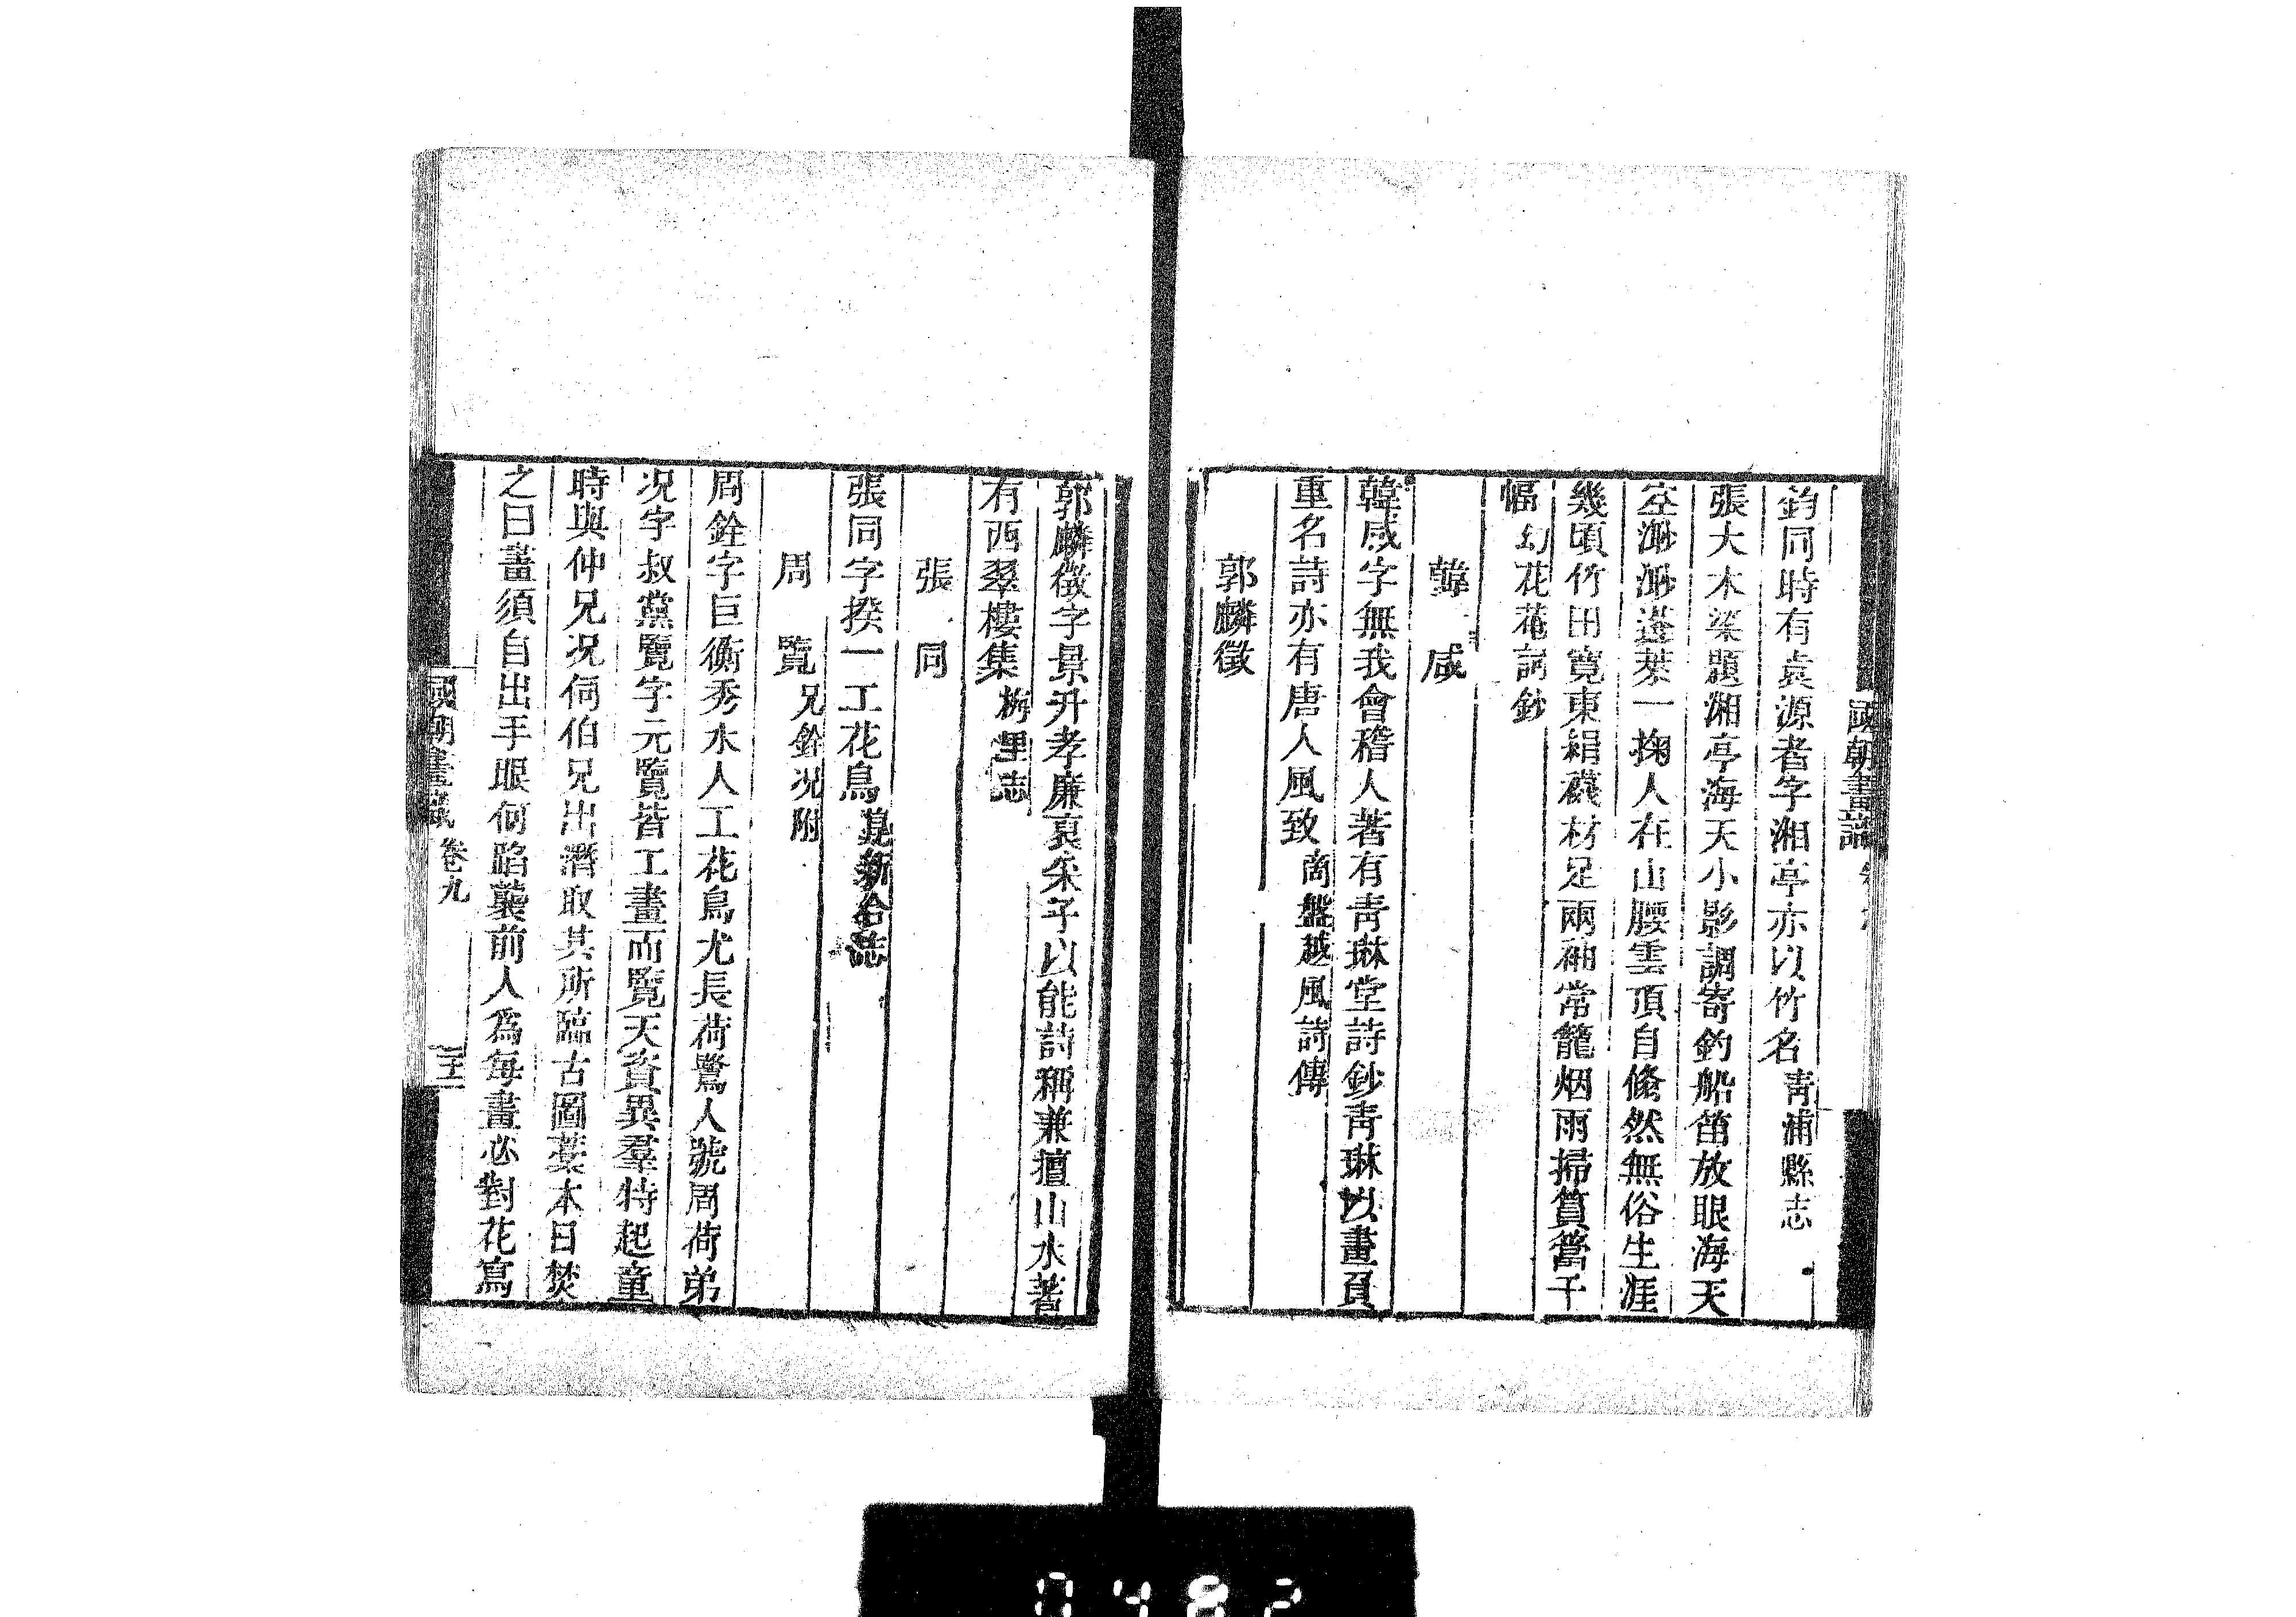 國朝畫識
鈞同時有袁源者字湘亭亦以竹名青浦縣志
張大木梁題湘亭海天小影調寄釣船笛放眼海天
空渺渺蓬萊一掬人在山腰雲頂自翛然無俗生涯
幾頃竹田寬東絹襪材足兩袖常籠烟雨掃篔簹千
幅幻花菴詞鈔
韓咸
韓咸字無我會稽人著有青琳堂詩鈔青琳以畫負
重名詩亦有唐人風致商盤越風詩傳
郭麟徵
郭麟徵字景升孝廉裒朱子以能詩稱兼擅山水著
有西翠樓集梅里志
張同
張同字揆一工花鳥崑新合誌
周覽兄銓况附
周銓字巨衡秀水人工花鳥尤長荷鷺人號周荷弟
况字叔黨覽字元覽皆工畫而覽天資異羣特起童
時與仲兄况伺伯兄出潛取其所臨古圖藁本日焚
之曰畫須自出手眼何蹈襲前人為每畫必對花寫
國朝畫識 卷九
0482